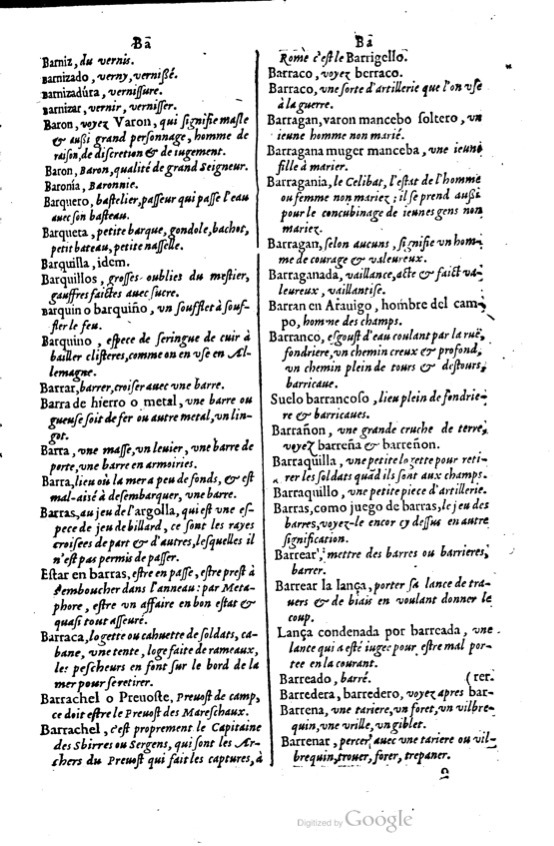 Ba
Barniz, du vernis.
Barnizado, verny, vernißé.
Barnizadúra, vernissure.
Barnizar, vernir, vernisser.
Baron, voyez Varon, qui signifie masle
& außi grand personnage, homme de
raison, de discretion & de iugement.
Baron, Baron, qualité de grand Seigneur.
Baronía, Baronnie.
Barquero, bastelier, passeur qui passe l'eau
auec son basteau.
Barqueta, petite barque, gondole, bachot,
petit bateau, petite nasselle.
Barquilla, idem.
Barquillos, grosses oublies du mestier,
gauffres faictes auec sucre.
Barquin o barquiño, un soufflet à souf-
fler le feu.
Barquino, espece de seringue de cuir à
bailler clisteres, comme on en vse en Al-
lemagne.
Barrar, barrer, croiser auec vne barre.
Barra de hierro o metal, vne barre ou
gueuse soit de fer ou autre metal, vn lin-
got.
Barra, vne masse, vn leuier, vne barre de
porte, vne barre en armoiries.
Barra, lieu où la mer a peu de fonds, & est
mal-aisé à desembarquer, vne barre.
Barras, au jeu de l'argolla, qui est vne es-
pece de jeu de billard, ce sont les rayes
croisees de part & d'autres, lesquelles il
n'est pas permis de passer.
Estar en barras, estre en passe, estre prest à
s'emboucher dans l'anneau: par Meta-
phore, estre vn affaire en bon estat &
quasi tout asseuré.
Barraca, logette ou cahuette de soldats, ca-
bane, vne tente, loge faite de rameaux,
les pescheurs en font sur le bord de la
mer pour se retirer.
Barrachel o Preuoste, Preuost de camp,
ce doit estre le Preuost des Mareschaux.
Barrachel, c'est proprement le Capitaine
des Sbirres ou Sergens, qui sont les Ar-
chers du Preuost qui fait les captures, à
Ba
Rome c'est le Barrigello.
Barraco, voyez berraco.
Barraco, vne sorte d'artillerie que l'on vse
à la guerre.
Barragan, varon mancebo soltero, vn
ieune homme non marié.
Barragana muger manceba, vne ieune
fille à marier.
Barragania, le Celibat, l'estat de l'homme
ou femme non mariez; il se prend außi
pour le concubinage de ieunes gens non
mariez.
Barragan, selon aucuns, signifie vn hom-
me de courage & valeureux.
Barraganada, vaillance, acte & faict va-
leureux, vaillantise.
Barran en Arauigo, hombre del cam-
po, homme des champs.
Barranco, esgoust d'eau coulant par la ruë,
fondriere, vn chemin creux & profond,
vn chemin plein de tours & destours,
barricaue.
Suelo barrancoso, lieu plein de fondrie-
re & barricaues.
Barrañon, vne grande cruche de terre,
voyez barreña & barreñon.
Barraquilla, vne petite logette pour reti-
rer les soldats quad ils sont aux champs.
Barraquillo, vne petite piece d'artillerie.
Barras, como juego de barras, le jeu des
barres, voyez-le encor cy dessus en autre
signification.
Barrear, mettre des barres ou barrieres,
barrer.
Barrear la lança, porter sa lance de tra-
uers & de biais en voulant donner le
coup.
Lança condenada por barreada, vne
lance qui a esté iugee pour estre mal por-
tee en la courant.
Barreado, barré. (rer.
Barredera, barredero, voyez apres bar-
Barrena, vne tariere, vn foret, vn vilbre-
quin, vne vrille, vn giblet.
Barrenar, percer auec vne tariere ou vil-
brequin, trouer, forer, trepaner.
Digitized by Google